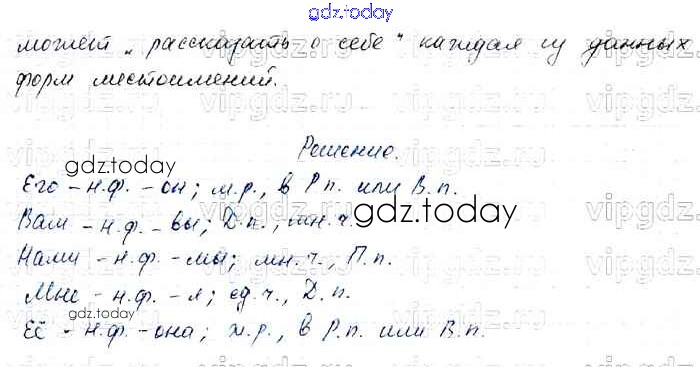 gdz.today
может „рассказать о себе" каждая из данных
форм местоимений.
Решение.
gdz.today
Его - н.ф. - он; м.р., в Р.п. или В.п.
Вам - н.ф. - вы; Д.п., мн.ч.
gdz.today
Нами - н.ф. - мы; мн.ч., П.п.
Мне - н.ф. - я; ед.ч., Д.п.
gdz.today
Её - н.ф. - она; ж.р., в Р.п. или В.п.